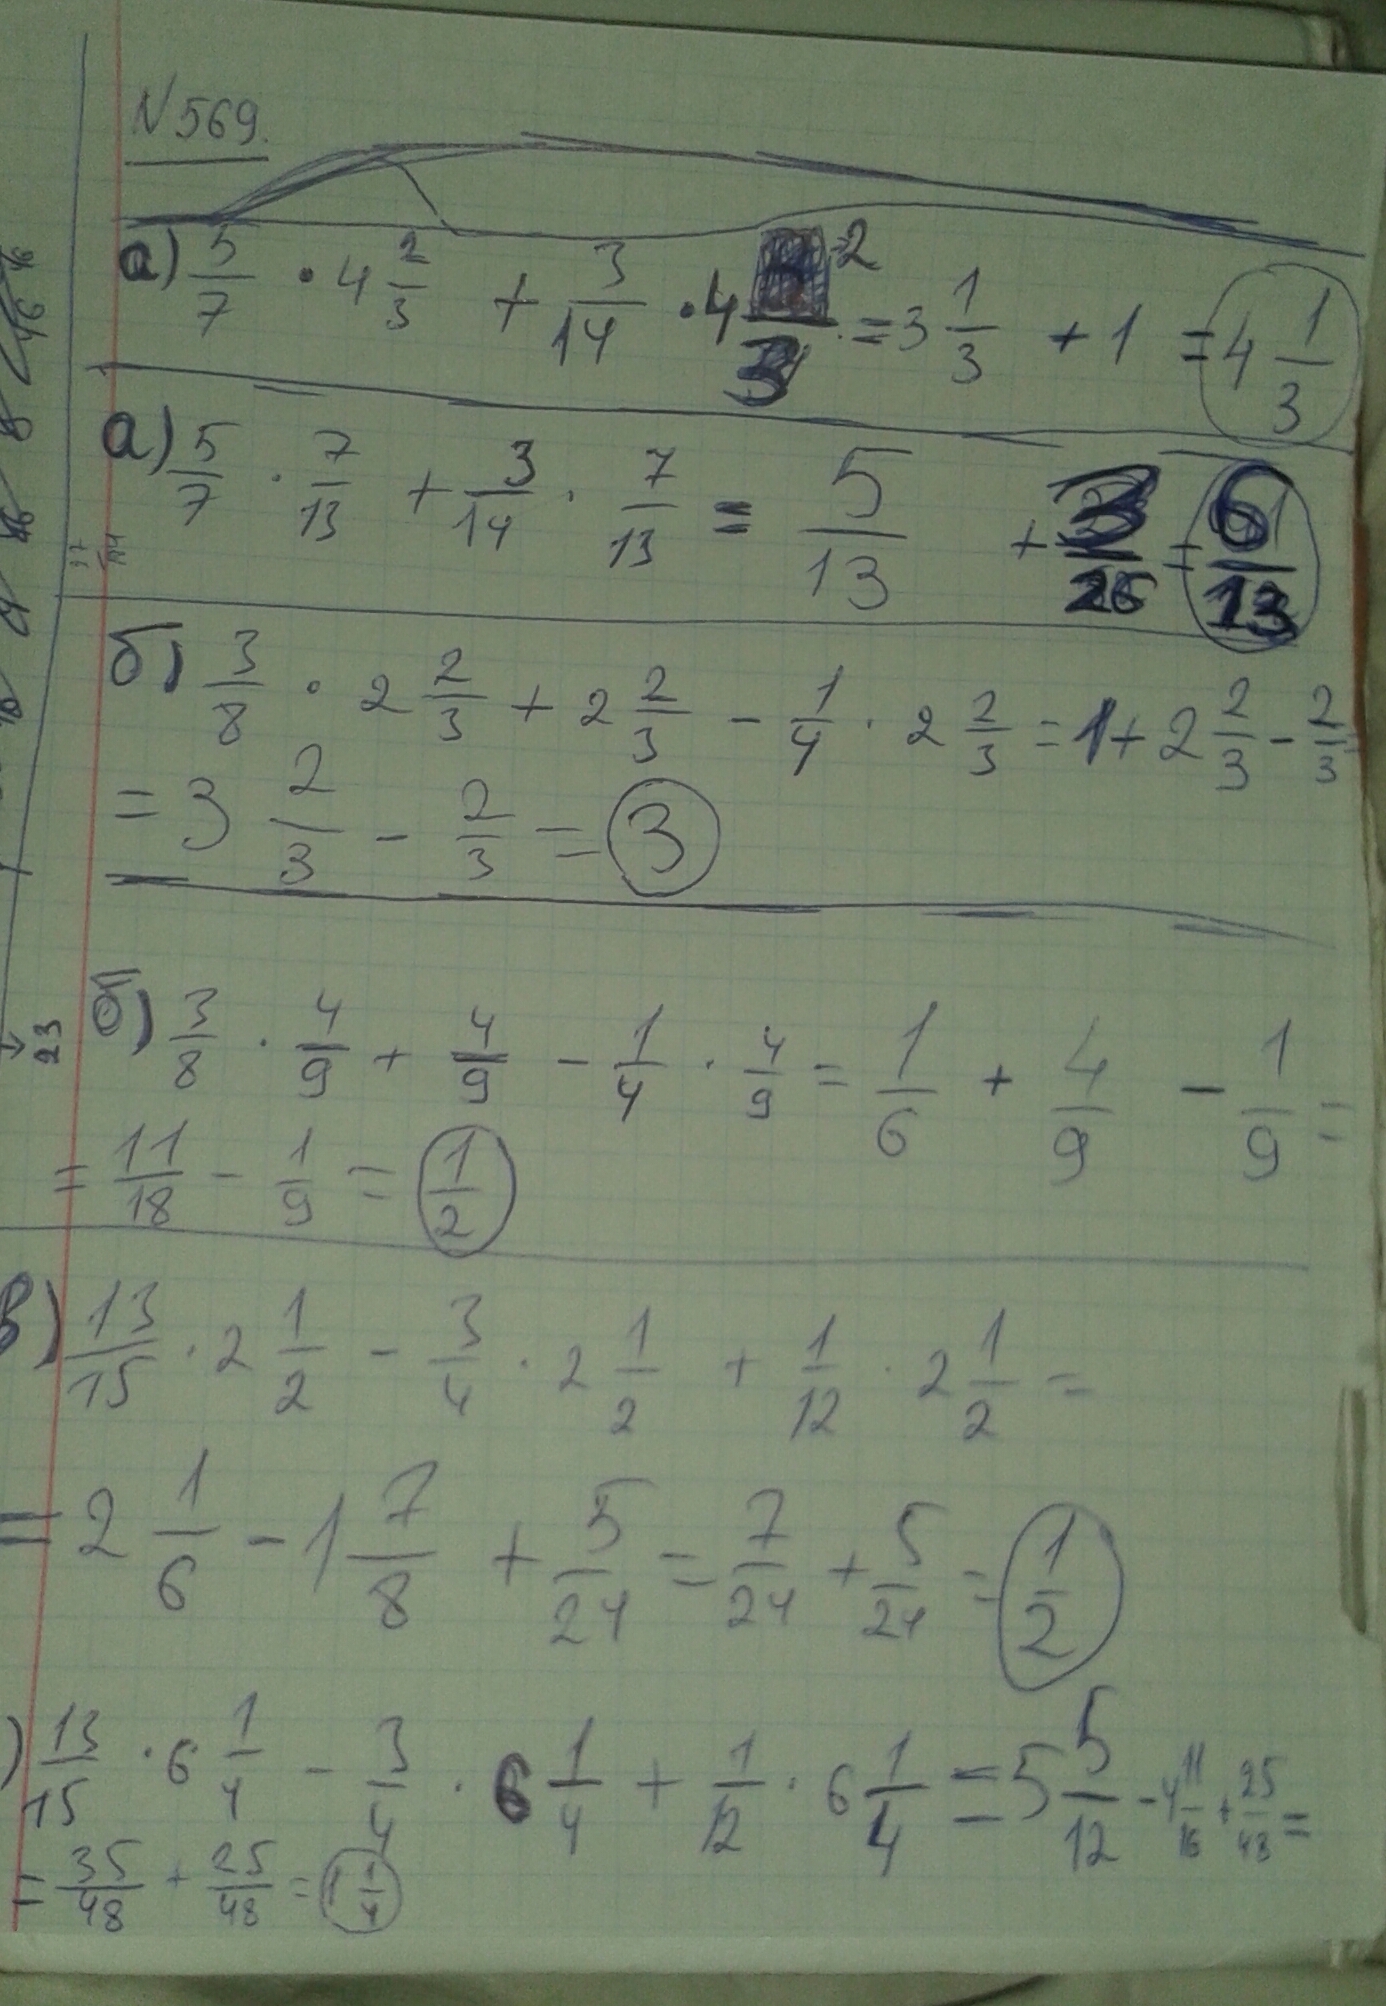 N 569.
а) 5/7 · 4 2/3 + 3/14 · 4 2/3 = 3 1/3 + 1 = 4 1/3
а) 5/7 · 7/13 + 3/14 · 7/13 = 5/13 + 3/26 = 6/13
б) 3/8 · 2 2/3 + 2 2/3 - 1/4 · 2 2/3 = 1 + 2 2/3 - 2/3 =
= 3 2/3 - 2/3 = 3
б) 3/8 · 4/9 + 4/9 - 1/4 · 4/9 = 1/6 + 4/9 - 1/9 =
= 11/18 - 1/9 = 1/2
23
в) 13/15 · 2 1/2 - 3/4 · 2 1/2 + 1/12 · 2 1/2 =
= 2 1/6 - 1 7/8 + 5/24 = 7/24 + 5/24 = 1/2
) 13/15 · 6 1/4 - 3/4 · 6 1/4 + 1/12 · 6 1/4 = 5 5/12 - 4 11/16 + 25/48 =
= 35/48 + 25/48 = 1 1/4